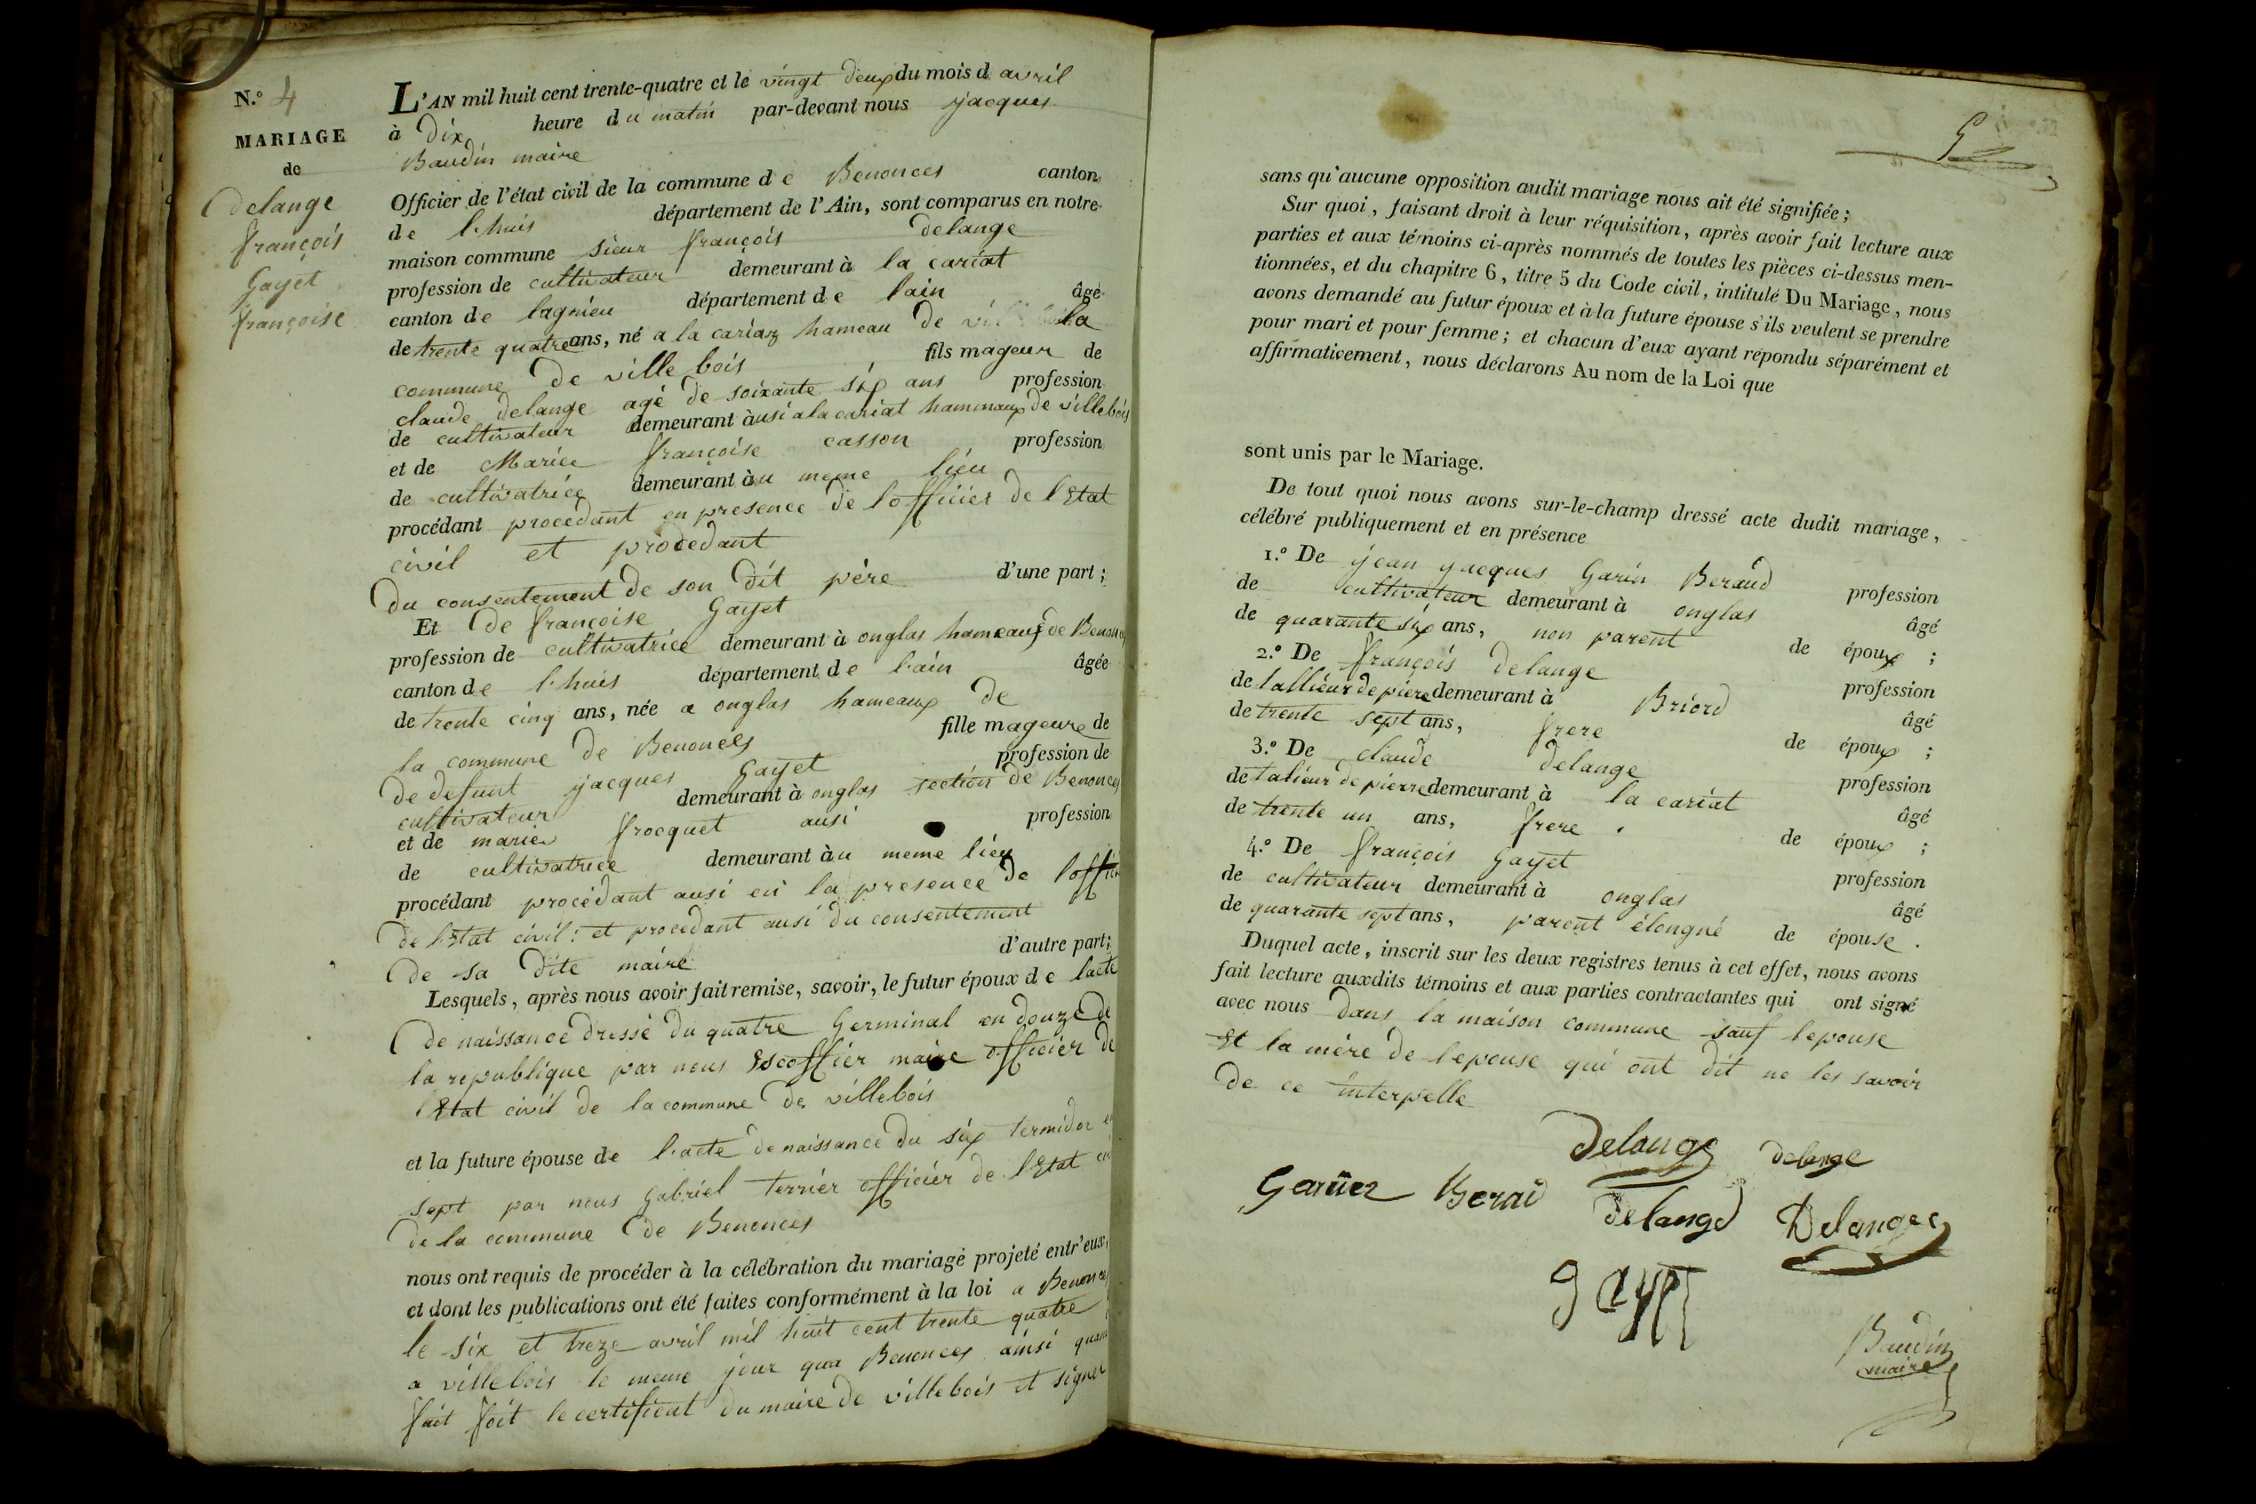 N.º 4
MARIAGE
de
delange
françois
Gayet
françoise
L'AN mil huit cent trente-quatre et le vingt deux du mois d avril
à dix heure du matin par-devant nous jacques
Baudin maire
Officier de l'état civil de la commune de Benonces canton
de l'huis département de l'Ain, sont comparus en notre
maison commune sieur françois delange
profession de cultivateur demeurant à la cariat
canton de lagnieu département de l'ain âgé
de trente quatre ans, né a la cariaz hameau de la
commune de ville bois fils mageur de
claude delange agé de soixante six ans profession
de cultivateur demeurant àusi a la cariat hammaux de villebois
et de Mariee françoise casson profession
de cultivatrice demeurant àu meme lieu
procédant procedant en presence de l'officier de l'Etat
civil et procedant
du consentement de son dit père d'une part;
Et de françoise Gayet
profession de cultivatrice demeurant à onglas hameaux de Benonces
canton de l'huis département de l'ain âgée
de trente cinq ans, née a onglas hameaux de
la commune de Benonces fille mageure de
de defunt jacques Gayet profession de
cultivateur demeurant à onglas section de Benonces
et de marie frocquet ausi profession
de cultivatrice demeurant àu meme lieu
procédant procédant ausi en la presence de l'officier
de l'Etat civil: et procedant ausi du consentement
de sa dite maire d'autre part;
Lesquels, après nous avoir fait remise, savoir, le futur époux de lacte
de naissance dressé du quatre Germinal en douze de
la republique par nous Escoffier maire officier de
l'Etat civil de la commune de villebois
et la future épouse de l'acte de naissance du six termidor en
sept par nous Gabriel terrier officier de l'Etat civ
de la commune de Benonces
nous ont requis de procéder à la célébration du mariage projeté entr'eux,
et dont les publications ont été faites conformément à la loi a Benonces
le six et treze avril mil huit cent trente quatre
a villebois le meme jour qua Benonces ainsi quan
fait foit le certificat du maire de villebois et signer
5
sans qu'aucune opposition audit mariage nous ait été signifiée;
Sur quoi, faisant droit à leur réquisition, après avoir fait lecture aux
parties et aux témoins ci-après nommés de toutes les pièces ci-dessus men-
tionnées, et du chapitre 6, titre 5 du Code civil, intitulé Du Mariage, nous
avons demandé au futur époux et à la future épouse s'ils veulent se prendre
pour mari et pour femme; et chacun d'eux ayant répondu séparément et
affirmativement, nous déclarons Au nom de la Loi que
sont unis par le Mariage.
De tout quoi nous avons sur-le-champ dressé acte dudit mariage,
célébré publiquement et en présence
1.º De jean jacques Garin Beraud profession
de cultivateur demeurant à onglas âgé
de quarante six ans, non parent de époux;
2.º De françois delange profession
de tallieur de piere demeurant à Briord âgé
de trente sept ans, frere de époux;
3.º De claude delange profession
de talieur de pierre demeurant à la cariat âgé
de trente un ans, frere. de époux;
4.º De françois Gayet profession
de cultivateur demeurant à onglas âgé
de quarante sept ans, parent élongné de épouse.
Duquel acte, inscrit sur les deux registres tenus à cet effet, nous avons
fait lecture auxdits témoins et aux parties contractantes qui ont signé
avec nous dans la maison commune sauf lepouse
Et la mère de lepouse qui ont dit ne les savoir
de ce interpelle
Delange delange
Berau delange Delange
gayet
Baudin
maire